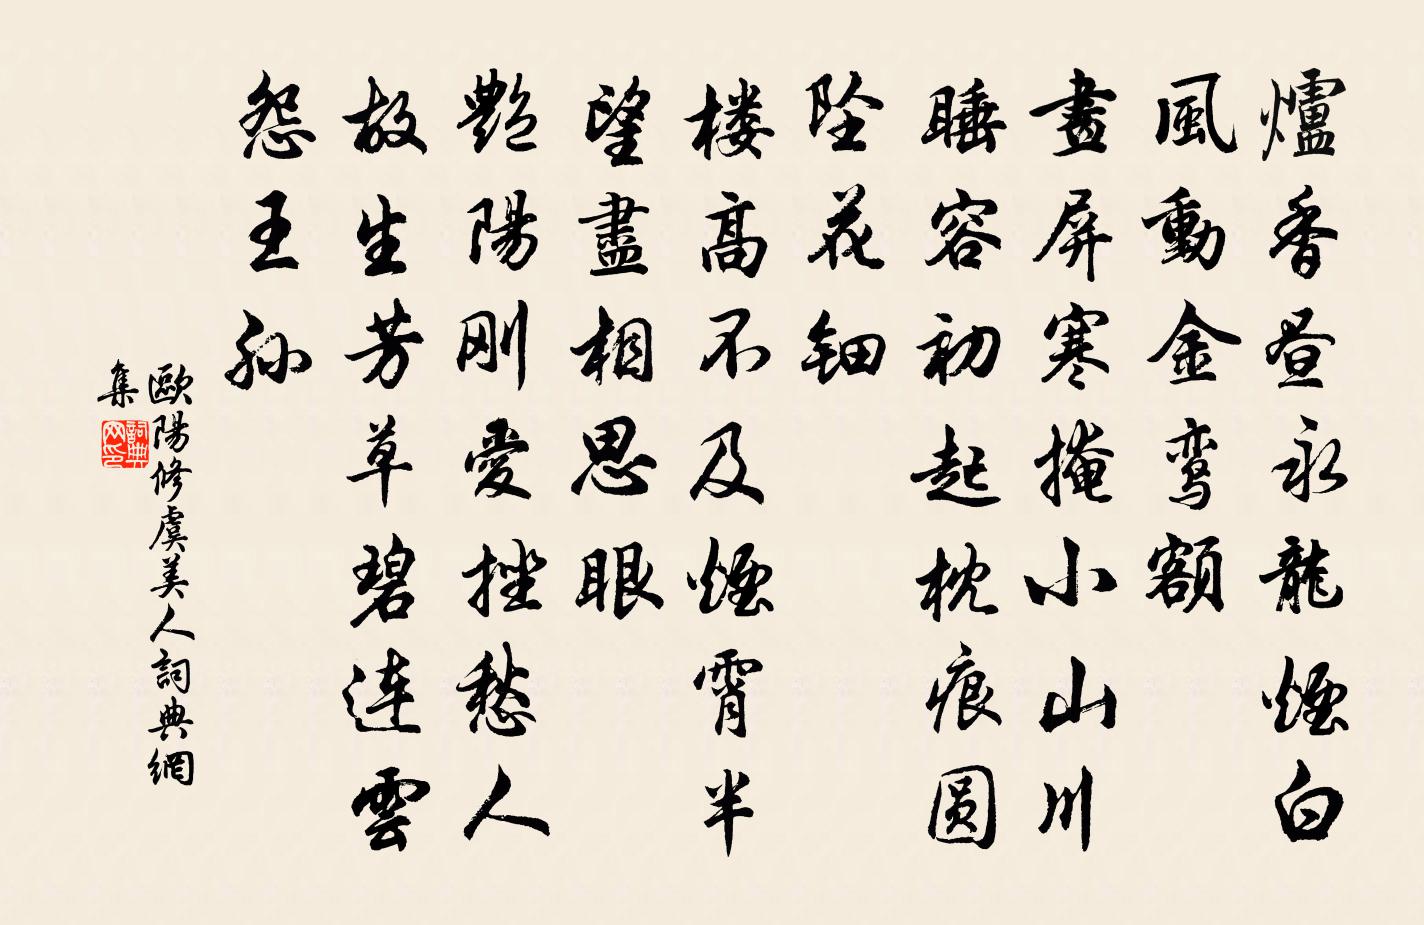 爐香昼永龍煙白
風動金鸾額
畫屏寒掩小山川
睡容初起枕痕圆
坠花钿
楼高不及煙霄半
望盡相思眼
艶陽刚愛挫愁人
故生芳草碧连雲
怨王孙
歐陽修虞美人詞典網
集
詞典
网印